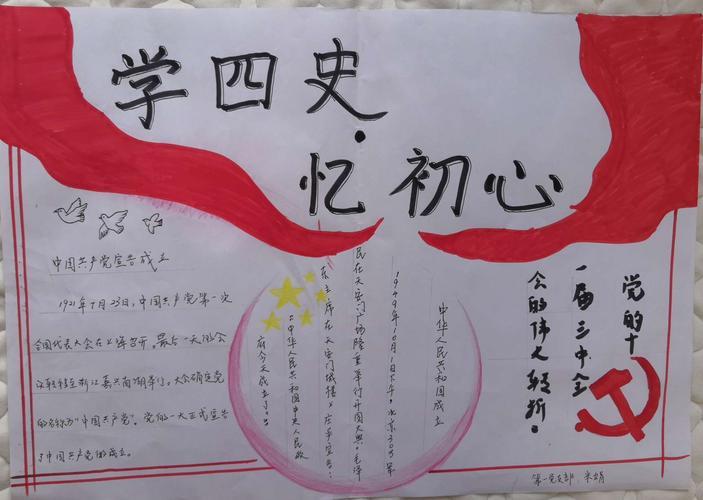 学四史·
忆初心
中国共产党宣告成立
1921年7月23日,中国共产党第一次
全国代表大会在上海召开。最后一天的会
议转移至浙江嘉兴南湖举行。大会确定党
的名称为“中国共产党”。党的一大正式宣告
了中国共产党的成立。
中华人民共和国成立
1949年10月1日下午,北京30万军
民在天安门广场隆重举行开国大典。毛泽
东主席在天安门城楼上庄严宣告:
“中华人民共和国中央人民政
府今天成立了。”
党的十
一届三中全
会的伟大转折。
第一党支部